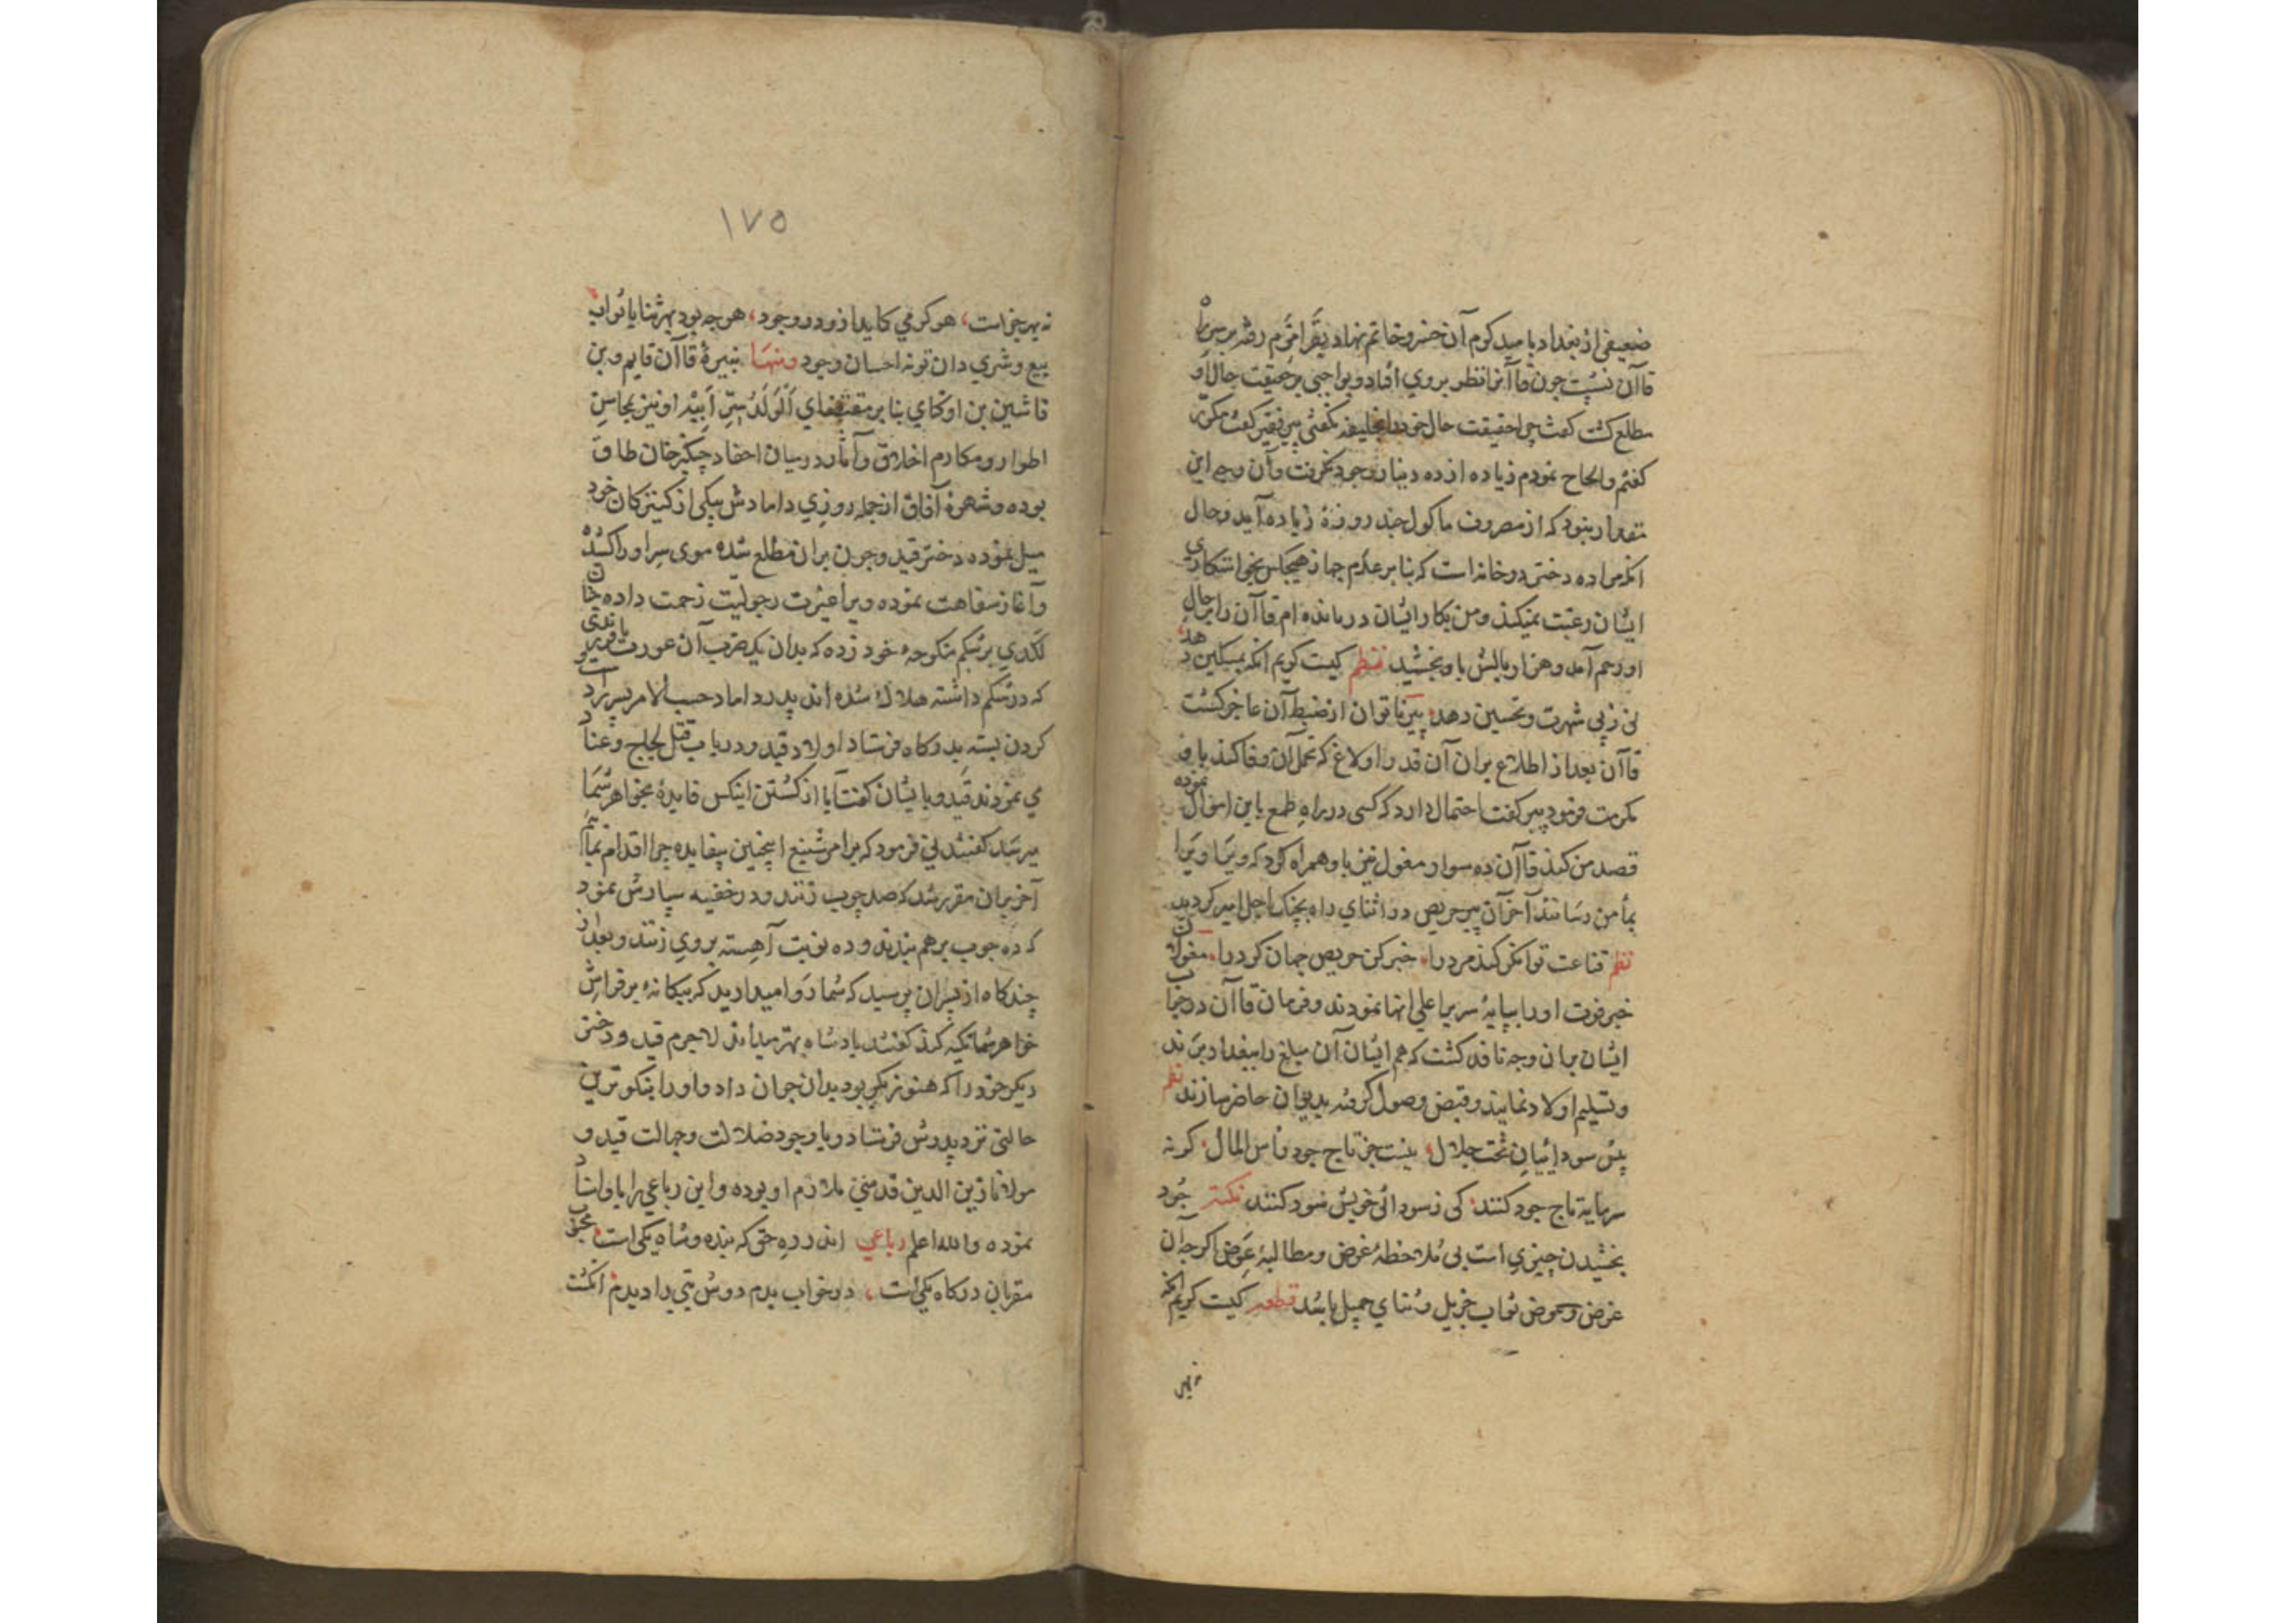 ضعیفی از بغداد بامید کرم آن خسرو حاتم نهاد بقراقرم رفته بر سر راه
قاآن نشست چون قاآنرا نظر بر وی افتاد و بواجبی بر حقیقت حال او
مطلع کشت کفت چرا حقیقت حال خود را بخلیفه نکفتی پیر فقیر کفت مکرّر
کفتم والحاح نمودم زیاده از ده دینار وجود نکرفت وآن وجه این
مقدار نبود که از مصروف ماکول چند روزهٔ زیاده آید وحال
آنکه مرا ده دختر در خانه است که بنا بر عدم جهاز هیچکس بخواستکاری
ایشان رغبت نمیکند ومن بکار ایشان درمانده ام قاآن را بر حال
او رحم آمد وهزار بالش باو بخشید نظم کیست کریم آنکه بمسکین دهد
نی ز پی شهرت وتحسین دهد پیر ناتوان از ضبط آن عاجز کشت
قاآن بعد از اطلاع بران آن قدر اولاغ که بحمل آن وفا کند باو
مکرمت فرمود پیر کفت احتمال دارد که کسی در راه طمع باین اموال نموده
قصد من کند قاآن ده سوار مغول نیز باو همراه کرد که ویرا
بمأمن رسانند آخر آن پیر حریص در اثنای راه بچنک اجل اسیر کردید
نظم قناعت توانکر کند مرد را خبر کن حریص جهان کرد را مغولان
خبر فوت او را بپایهٔ سریر اعلی انها نمودند وفرمان قاآن در جناب
ایشان بران وجه نافذ کشت که هم ایشان آن مبلغ را ببغداد برند
وتسلیم اولاد نمایند وقبض وصول کرفته بدیوان حاضر سازند نظم
پیش سودائیان تخت جلال نیست جز تاج جود رأس المال کر نه
سرمایه تاج جود کنند کی ز سودای خویش سود کنند نکته جُود
بخشیدن چیزی است بی ملاحظهٔ غرض ومطالبهٔ عَوَض اکرچه آن
غرض وعوض ثواب جزیل وثنای جمیل باشد قطعه کیست کریم آنکه
نه بهر
۱۷۵
نه بهر جزاست هر کرمی کاید ازو در وجود هر چه بود بهر ثنا یا ثواب
بیع وشری دان تو نه احسان وجود ومنها نبیرهٔ قاآن قایم وبن
قاشین بن اوکتای بنا بر مقتضای اَلْوَلَدُ سِرُّ اَبِیْهِ او نیز بمحاسن
اطوار ومکارم اخلاق وآثار در میان احفاد چنکیز خان طاق
بوده وشهرهٔ آفاق از جمله روزی دامادش بیکی از کنیزکان خود
میل نموده دختر قیدو چون بران مطلع شده موی سر او را کنده
وآغاز سفاهت نموده ویرا غیرت رجولیت زحمت داده چنان
لکدی بر شکم منکوحهٔ خود زده که بدان یک ضرب آن عورت با فرزندی
که در شکم داشته هلاک شده اند پدر داماد حسب الامر پسر را دست و
کردن بسته بدرکاه فرستاد اولاد قیدو در باب قتل لجاج وعناد
می نمودند قیدو بایشان کفت آیا از کشتن اینکس فایدهٔ بخواهر شما
میرسد کفتند نی فرمود که بر امر شنیع اینچنین بیفایده چرا اقدام نمائیم
آخر بران مقرر شد که صد چوب زنند ودر خفیه سپارش نمود
که ده چوب بر هم بندند وده نوبت آهسته بر وی زنند وبعد از
چند کاه از پسران پرسید که شما روا میدارید که بیکانهٔ بر فراش
خواهر شما تکیه کند کفتند پادشاه بهتر میداند لاجرم قیدو دختر
دیکر خود را که هنوز بکر بود بدان جوان داد واو را بنیکوترین
حالتی نزد پدرش فرستاد وبا وجود ضلالت وجهالت قیدو
مولانا زین الدین قدسی ملازم او بوده واین رباعی را باو اسناد
نموده والله اعلم رباعی اندر ره حق که بنده وشاه یکی است محبوب
مقربان درکاه یکی است در خواب بدم دوش بتی را دیدم انکشت